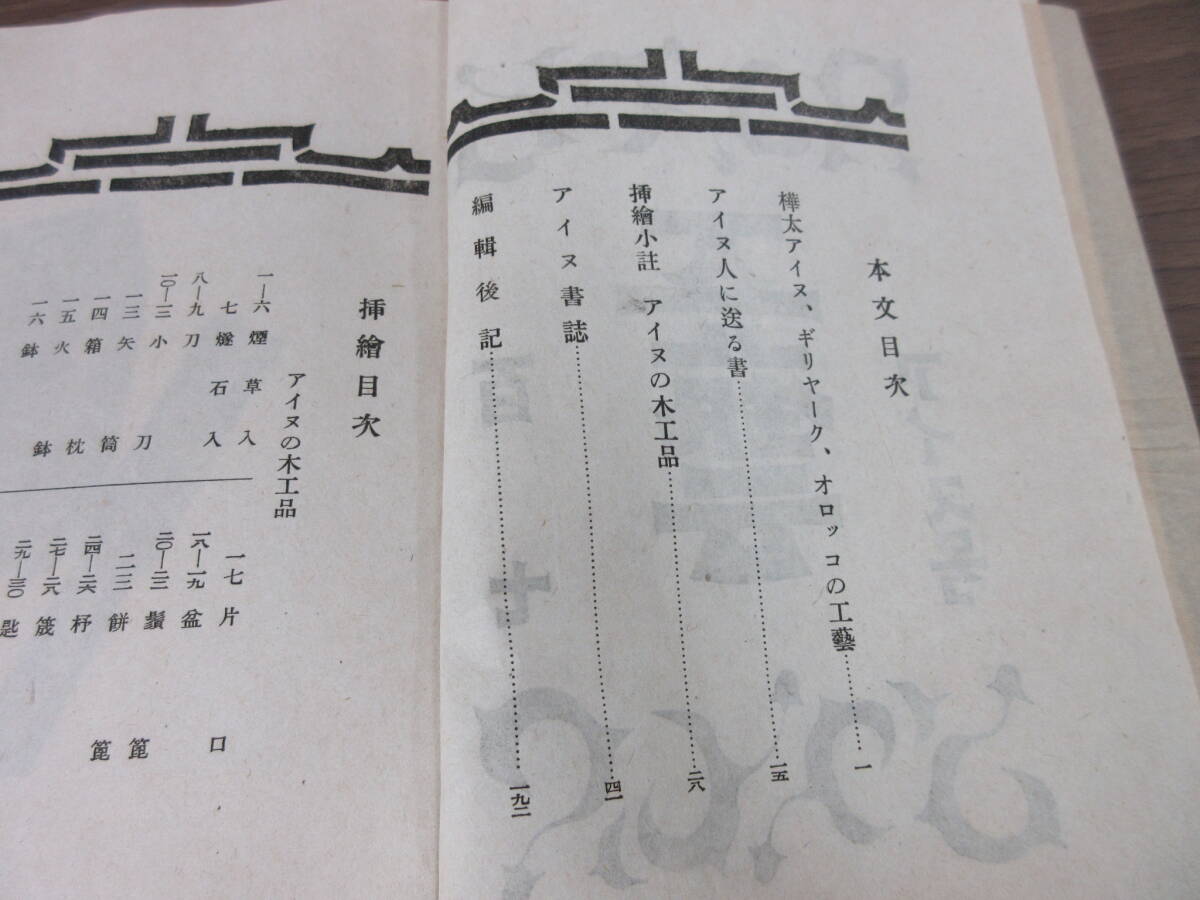 本文目次
樺太アイヌ、ギリヤーク、オロッコの工藝……一
アイヌ人に送る書……一五
挿繪小註 アイヌの木工品……二八
アイヌ書誌……四一
編輯後記……一九二
挿繪目次
アイヌの木工品
一—六 煙草入
七 燧石入
八—九 刀
一〇—一二 小刀
一三 矢筒
一四 箱枕
一五 火鉢
一六 鉢
一七 片口
一八—一九 盆
二〇—二二 鬚箆
二三 餅箆
二四—二六 杼
二七—二八 筬
二九—三〇 匙